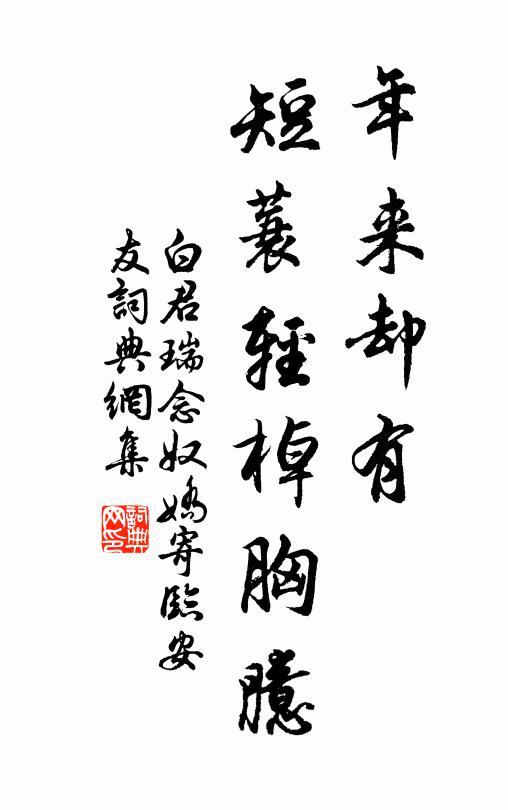 年来却有
短蓑輕棹胸臆
白君瑞念奴嬌寄臨安
友詞典網集
詞典
网印